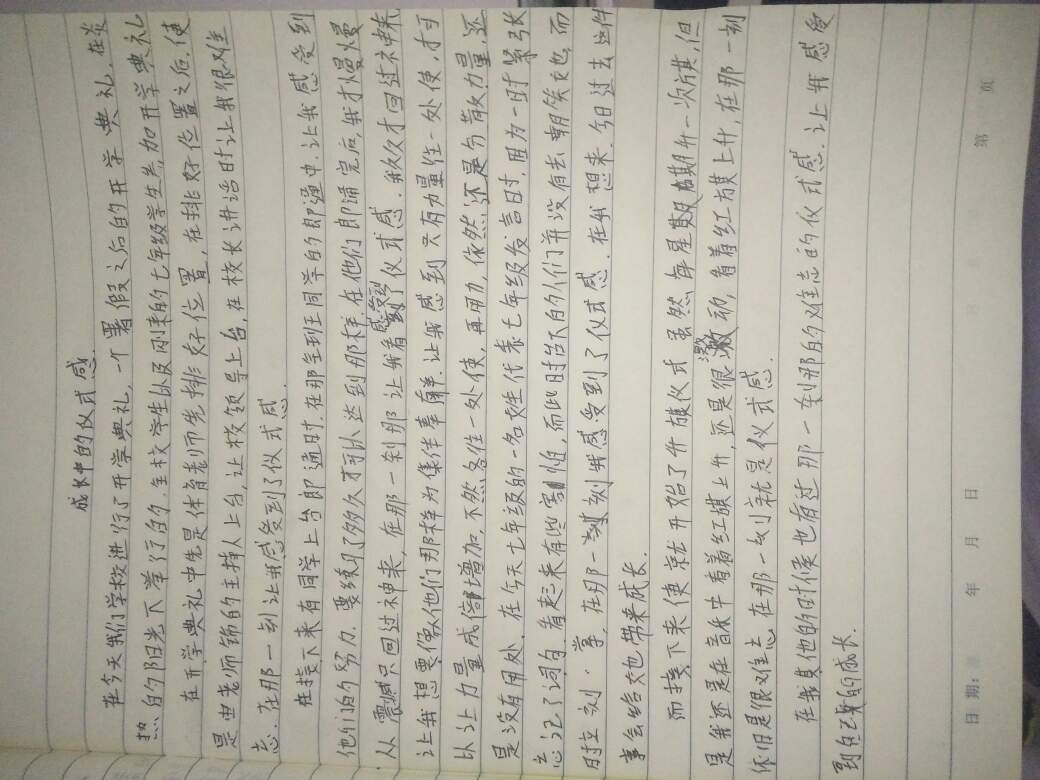 成长中的仪式感
在今天我们学校进行了开学典礼,一个署假之后的开学典礼.在炎
热的阳光下举行的.全校学生以及刚来的七年级学生参加开学典礼
在开学典礼中先是体育老师先排好位置,在排好位置之后,使
是由老师饰的主持人上台,让校领导上台,在校长讲话时让我很难
忘.在那一刻让我感受到了仪式感.
在接下来有同学上台即诵时.在那全到王同学的即诵中.让我感受到
他们的努力.要练习了多久才可以达到那样.在他们即诵完后,我才慢慢
从震撼只回过神来,在那一刹那让我感受到了仪式感.我久久才回过神来
让我想要像他们那样为集体奉献.让我感到只有力量往一处使,才可
以让力量成倍增加,不然各往一处使,再用力,依然还是分散力量,还
是没有用处.在今天七年级的一名姓生代表七年级发言时.因为一时紧张
忘记了词句.看起来有些害怕,而此时台下的人们并没有去朝笑她,而
时立刻 掌,在那一刻我感受到了仪式感.在我想来.今日过去这件
事会给她带来成长.
而接下来使就开始了升旗仪式 虽然每星期升一次旗,但
是我还是在音乐中看着红旗上升,还是很激动,看着红旗上升,在那一刻
依旧是很难忘 在那一刻就是仪式感
在我其他的时侯也有过那一刹那的难忘的仪式感.让我感受
到自己的成长.
日期: 年 月 日
第 页